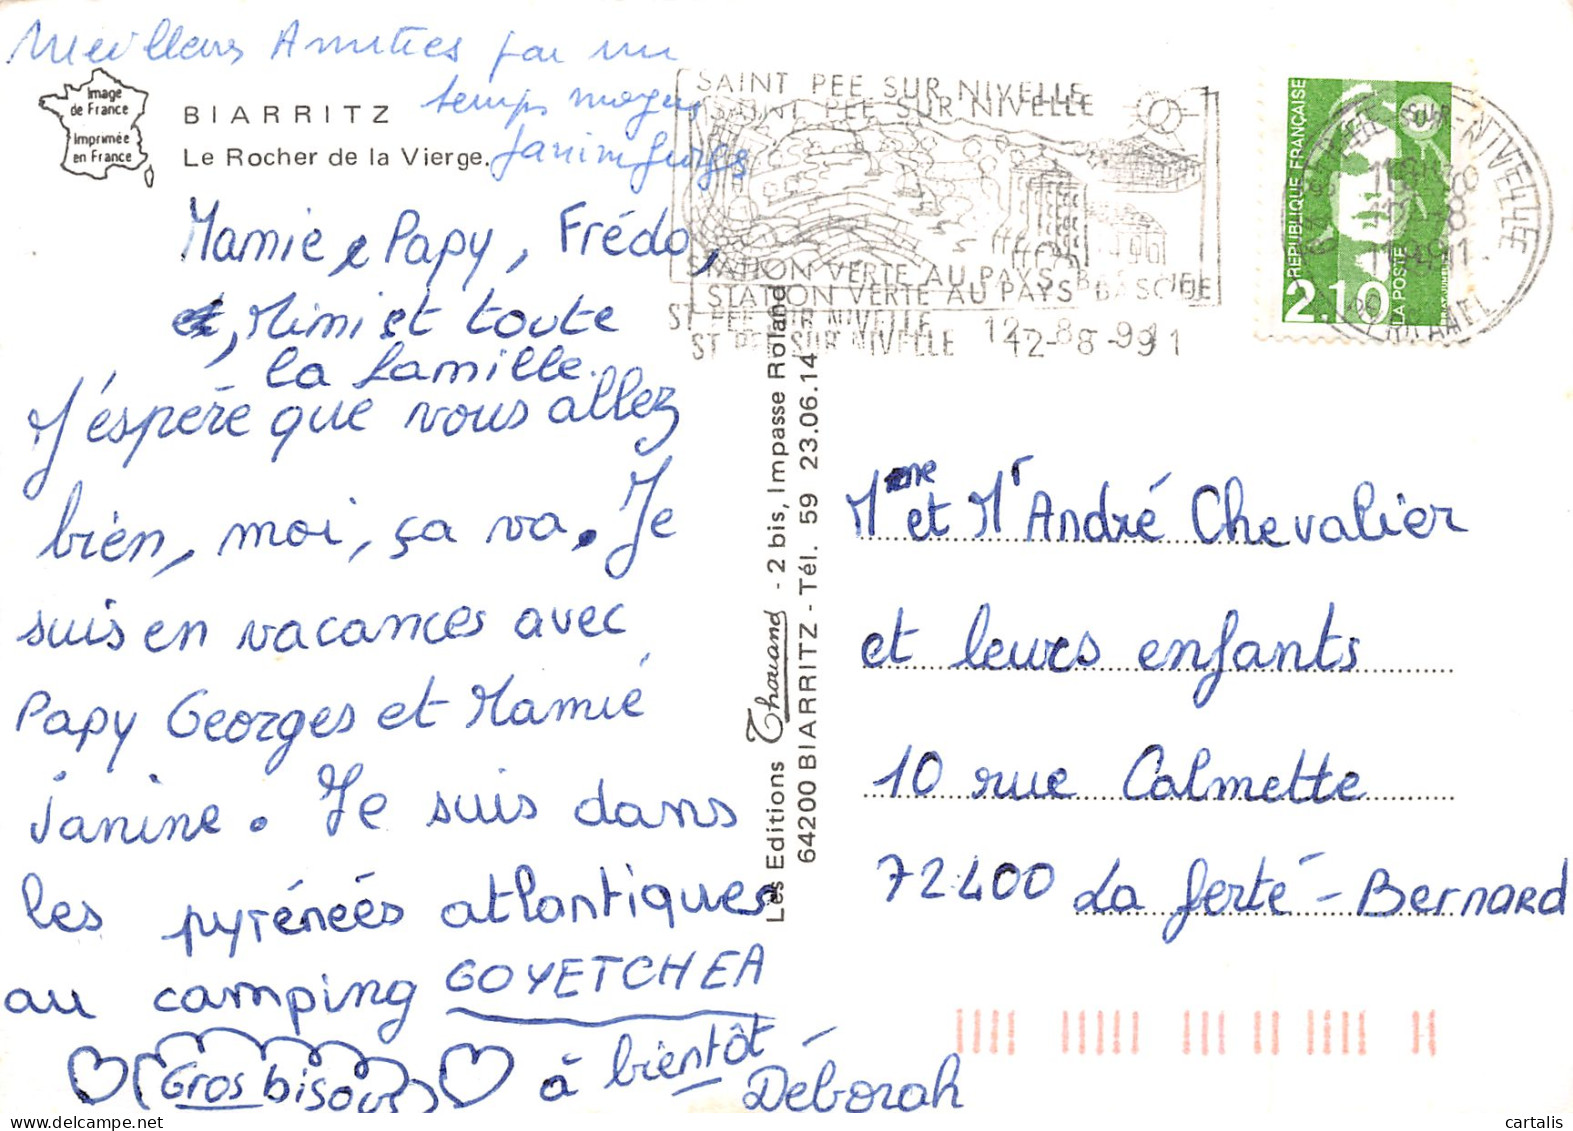 Meilleurs Amitiés par un
temps moyen
Janine Georges
Image
de France
Imprimée
en France
BIARRITZ
Le Rocher de la Vierge.
Mamie e Papy, Frédo,
et, Mimi et toute
la famille.
J'éspère que vous allez
bien, moi, ça va. Je
suis en vacances avec
Papy Georges et Mamie
Janine. Je suis dans
les pyrénéés atlantiques
au camping GOYETCHEA
Gros bisous
à bientôt -
Deborah
Les Editions Thouand - 2 bis, Impasse Roland
64200 BIARRITZ - Tél. 59 23.06.14
SAINT PEE SUR NIVELLE
SAINT PEE SUR NIVELLE
STATION VERTE AU PAYS BASQUE
STATION VERTE AU PAYS BASQUE
ST PEE SUR NIVELLE 12-8-91
ST PEE SUR NIVELLE 12-8-991
REPUBLIQUE FRANÇAISE
LA POSTE
2.10
SUR-NIVELLE
Mme et Mr André Chevalier
et leurs enfants
10 rue Calmette
72400 La ferté-Bernard
cartalis
delcampe.net